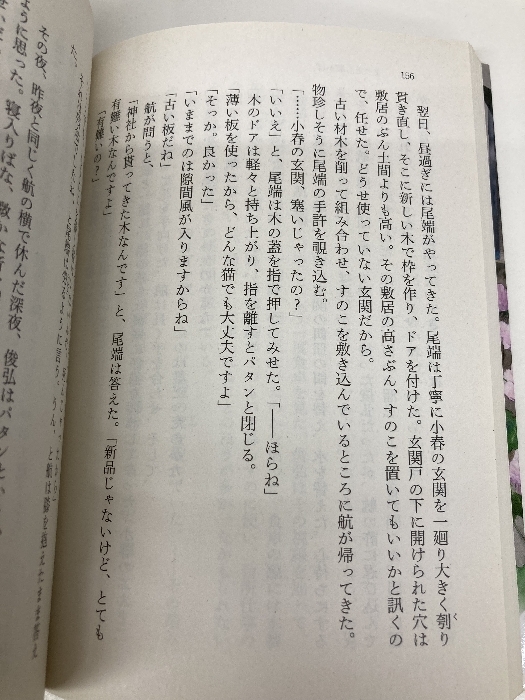 156
翌日、昼過ぎには尾端がやってきた。尾端は丁寧に小春の玄関を一廻り大きく刳り
貫き直し、そこに新しい木で枠を作り、ドアを付けた。玄関戸の下に開けられた穴は
敷居のぶん土間よりも高い。その敷居の高さぶん、すのこを置いてもいいかと訊くの
で、任せた。どうせ使っていない玄関だから。
古い材木を削って組み合わせ、すのこを敷き込んでいるところに航が帰ってきた。
物珍しそうに尾端の手許を覗き込む。
「……小春の玄関、塞いじゃったの？」
「いいえ」と、尾端は木の蓋を指で押してみせた。「――ほらね」
木のドアは軽々と持ち上がり、指を離すとパタンと閉じる。
「薄い板を使ったから、どんな猫でも大丈夫ですよ」
「そっか。良かった」
「いままでのは隙間風が入りますからね」
「古い板だね」
航が問うと、
「神社から貰ってきた木なんです」と、尾端は答えた。「新品じゃないけど、とても
有難い木なんですよ」
「有難いの？」
その夜、昨夜と同じく航の横で休んだ深夜、俊弘はパタンと、
ように思った。寝入りばな、微かな